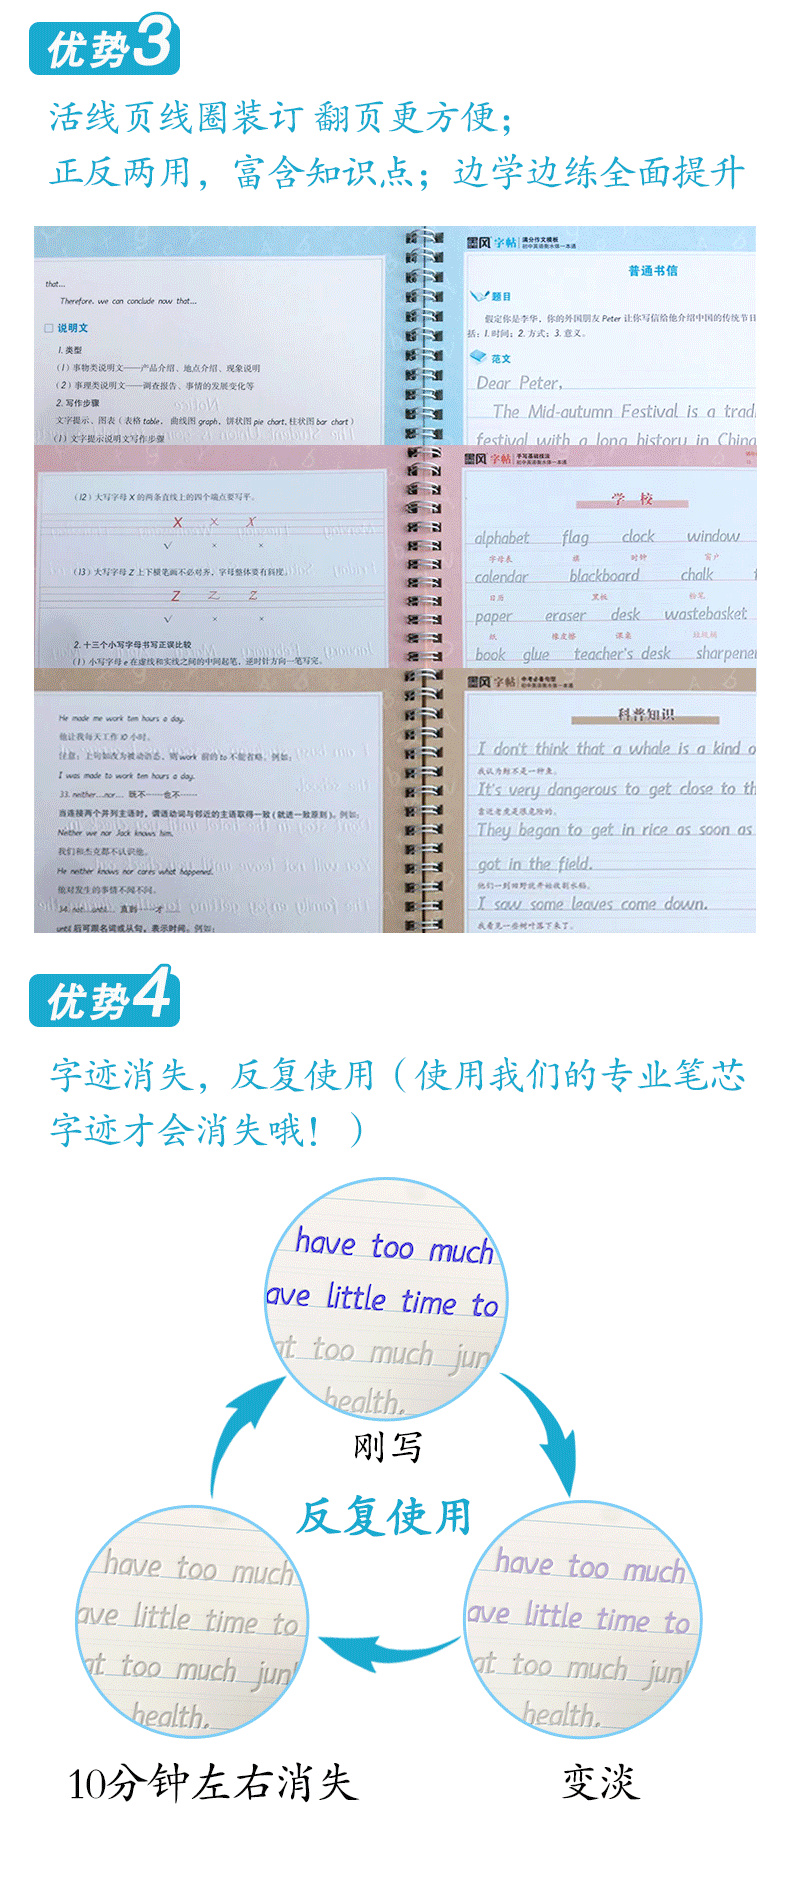 优势3
活线页线圈装订 翻页更方便；
正反两用，富含知识点；边学边练全面提升
that...
Therefore, we can conclude now that...
说明文
1. 类型
(1) 事物类说明文——产品介绍、地点介绍、现象说明
(2) 事理类说明文——调查报告、事情的发展变化等
2. 写作步骤
文字提示、图表（表格 table、曲线图 graph、饼状图 pie chart, 柱状图 bar chart）
(1) 文字提示说明文写作步骤
墨风字帖 满分作文模板
初中英语衡水体一本通
普通书信
题目
假定你是李华，你的外国朋友 Peter 让你写信给他介绍中国的传统节日
括：1. 时间；2. 方式；3. 意义。
范文
Dear Peter,
The Mid-autumn Festival is a trad
festival with a long history in China
(12) 大写字母 X 的两条直线上的四个端点要写平。
X X X
√ × ×
(13) 大写字母 Z 上下横笔画不必对齐，字母整体要有斜度。
Z Z Z
√ × ×
2. 十三个小写字母书写正误比较
(1) 小写字母 e 在虚线和实线之间的中间起笔，逆时针方向一笔写完。
墨风字帖 手写基础技法
初中英语衡水体一本通
学 校
alphabet flag clock window
字母表 旗 时钟 窗户
calendar blackboard chalk
日历 黑板 粉笔
paper eraser desk wastebasket
纸 橡皮擦 课桌 垃圾桶
book glue teacher's desk sharpener
He made me work ten hours a day.
他让我每天工作 10 小时。
注意：上句如改为被动语态，则 work 前的 to 不能省略。例如：
I was made to work ten hours a day.
33. neither...nor... 既不……也不……
当连接两个并列主语时，谓语动词与邻近的主语取得一致（就近一致原则）。例如：
Neither we nor Jack knows him.
我们和杰克都不认识他。
He neither knows nor cares what happened.
他对发生的事情不闻不问。
34. not...until... 直到……才……
until 后可跟名词或从句，表示时间。例如：
墨风字帖 中考必备句型
初中英语衡水体一本通
科普知识
I don't think that a whale is a kind o
我认为鲸不是一种鱼。
It's very dangerous to get close to th
靠近老虎是很危险的。
They began to get in rice as soon as
got in the field.
他们一到田野就开始收割水稻。
I saw some leaves come down.
我看见一些树叶落下来了。
优势4
字迹消失，反复使用（使用我们的专业笔芯
字迹才会消失哦！）
have too much
ave little time to
at too much junk
health.
刚写
反复使用
have too much
ave little time to
at too much junk
health.
10分钟左右消失
have too much
ave little time to
at too much junk
health.
变淡